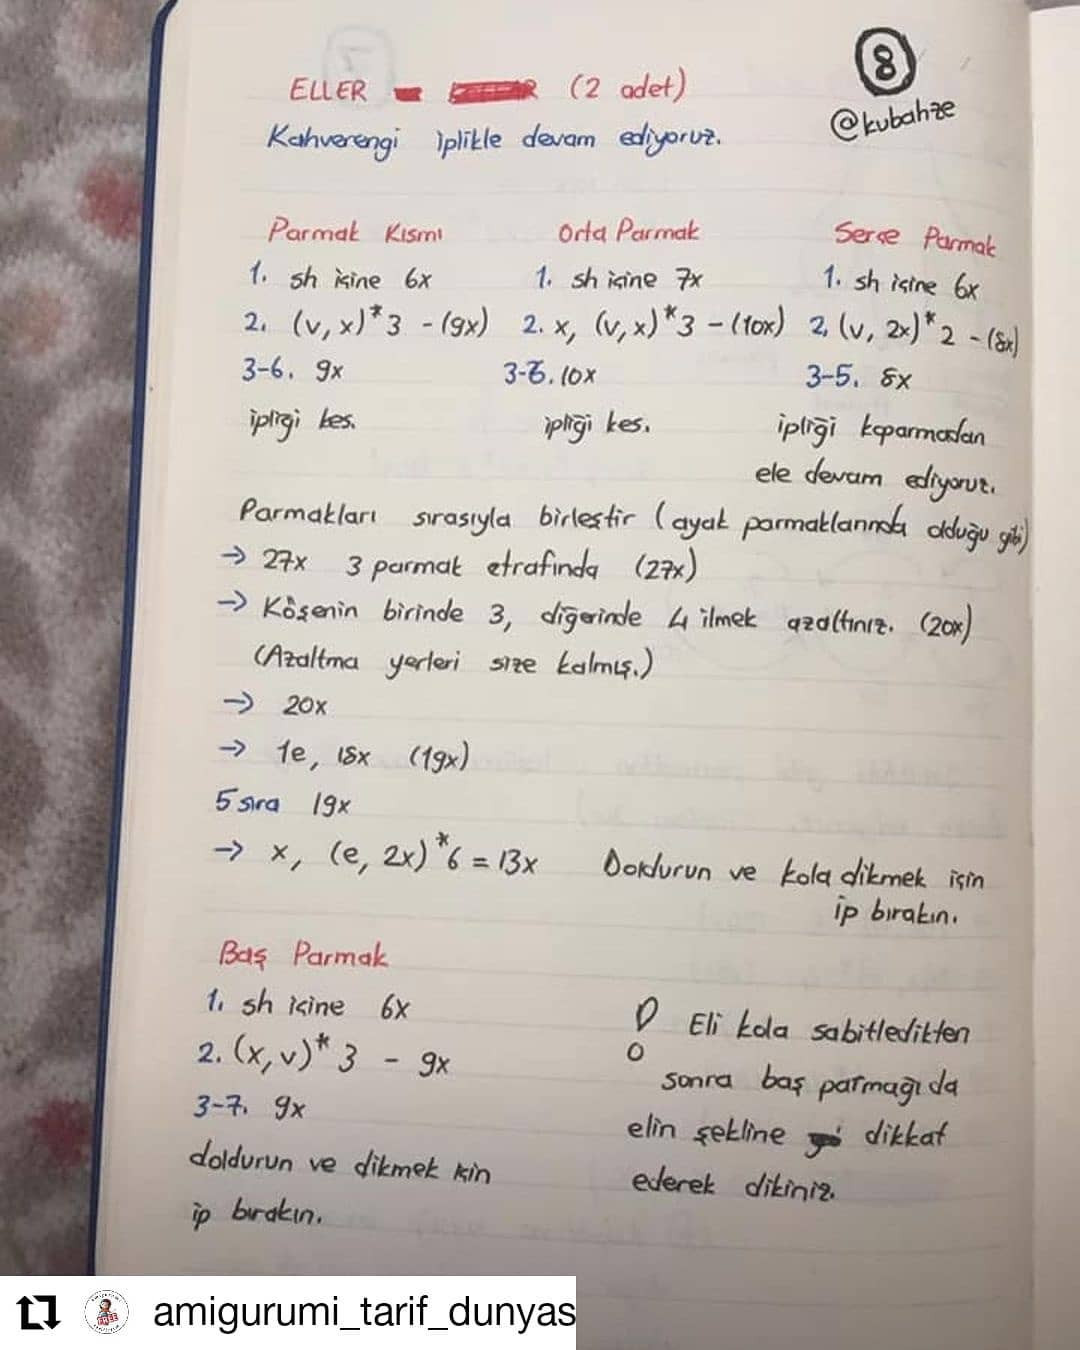 8
@kubahze
ELLER (2 adet)
Kahverengi iplikle devam ediyoruz.
Parmak Kısmı
1. sh içine 6x
2. (v, x)*3 - (9x)
3-6. 9x
ipliği kes.
Orta Parmak
1. sh içine 7x
2. x, (v, x)*3 - (10x)
3-6. 10x
ipliği kes.
Serçe Parmak
1. sh içine 6x
2. (v, 2x)*2 - (8x)
3-5. 8x
ipliği koparmadan
ele devam ediyoruz.
Parmakları sırasıyla birleştir (ayak parmaklarında olduğu gibi)
→ 27x 3 parmak etrafında (27x)
→ Köşenin birinde 3, diğerinde 4 ilmek azaltınız. (20x)
(Azaltma yerleri size kalmış.)
→ 20x
→ 1e, 18x (19x)
5 sıra 19x
→ x, (e, 2x)*6 = 13x
Doldurun ve kola dikmek için
ip bırakın.
Baş Parmak
1. sh içine 6x
2. (x, v)*3 - 9x
3-7. 9x
doldurun ve dikmek için
ip bırakın.
! Eli kola sabitledikten
sonra baş parmağı da
elin şekline dikkat
ederek dikiniz.
amigurumi_tarif_dunyas